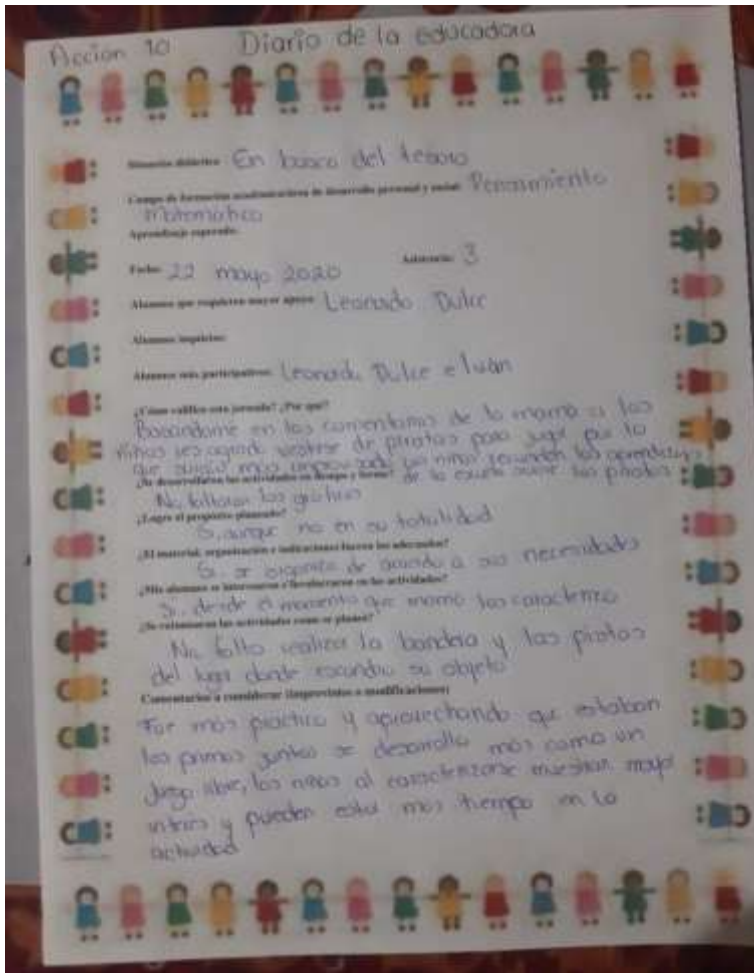 Acción 10 Diario de la educadora
Situación didáctica: En busca del tesoro
Campo de formación académica/área de desarrollo personal y social: Pensamiento
Matemático
Aprendizaje esperado:
Fecha: 22 mayo 2020 Asistencia: 3
Alumnos que requieren mayor apoyo: Leonardo Dulce
Alumnos inquietos:
Alumnos más participativos: Leonardo, Dulce e Iván
¿Cómo califico esta jornada? ¿Por qué?
Basandome en los comentarios de la mamá a los
niños les agrado vestirse de piratas para jugar por lo
que mas improvisado niños los aprendizajes
¿Se desarrollaron las actividades en tiempo y forma? de la los piratas
No, faltaron los
¿Logré el propósito planeado?
Si, aunque no en su totalidad
¿El material, organización e indicaciones fueron los adecuados?
Si, se organizo de acuerdo a sus necesidades
¿Mis alumnos se interesaron e involucraron en las actividades?
Si, desde el momento que mamá los caracterizo
¿Se culminaron las actividades como se planeó?
No, falto realizar la bandera y las pistas
del lugar donde escondio su objeto
Comentarios a considerar (imprevistos o modificaciones)
Fue mas practico y aprovechando que estaban
los primos juntos se desarrollo mas como un
juego libre, los niños al caracterizarse muestran mayor
interes y pueden estar mas tiempo en la
actividad